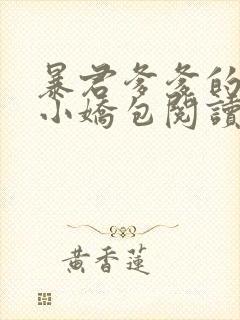 暴君爹爹的
小嬌包閱讀
黃香蓮